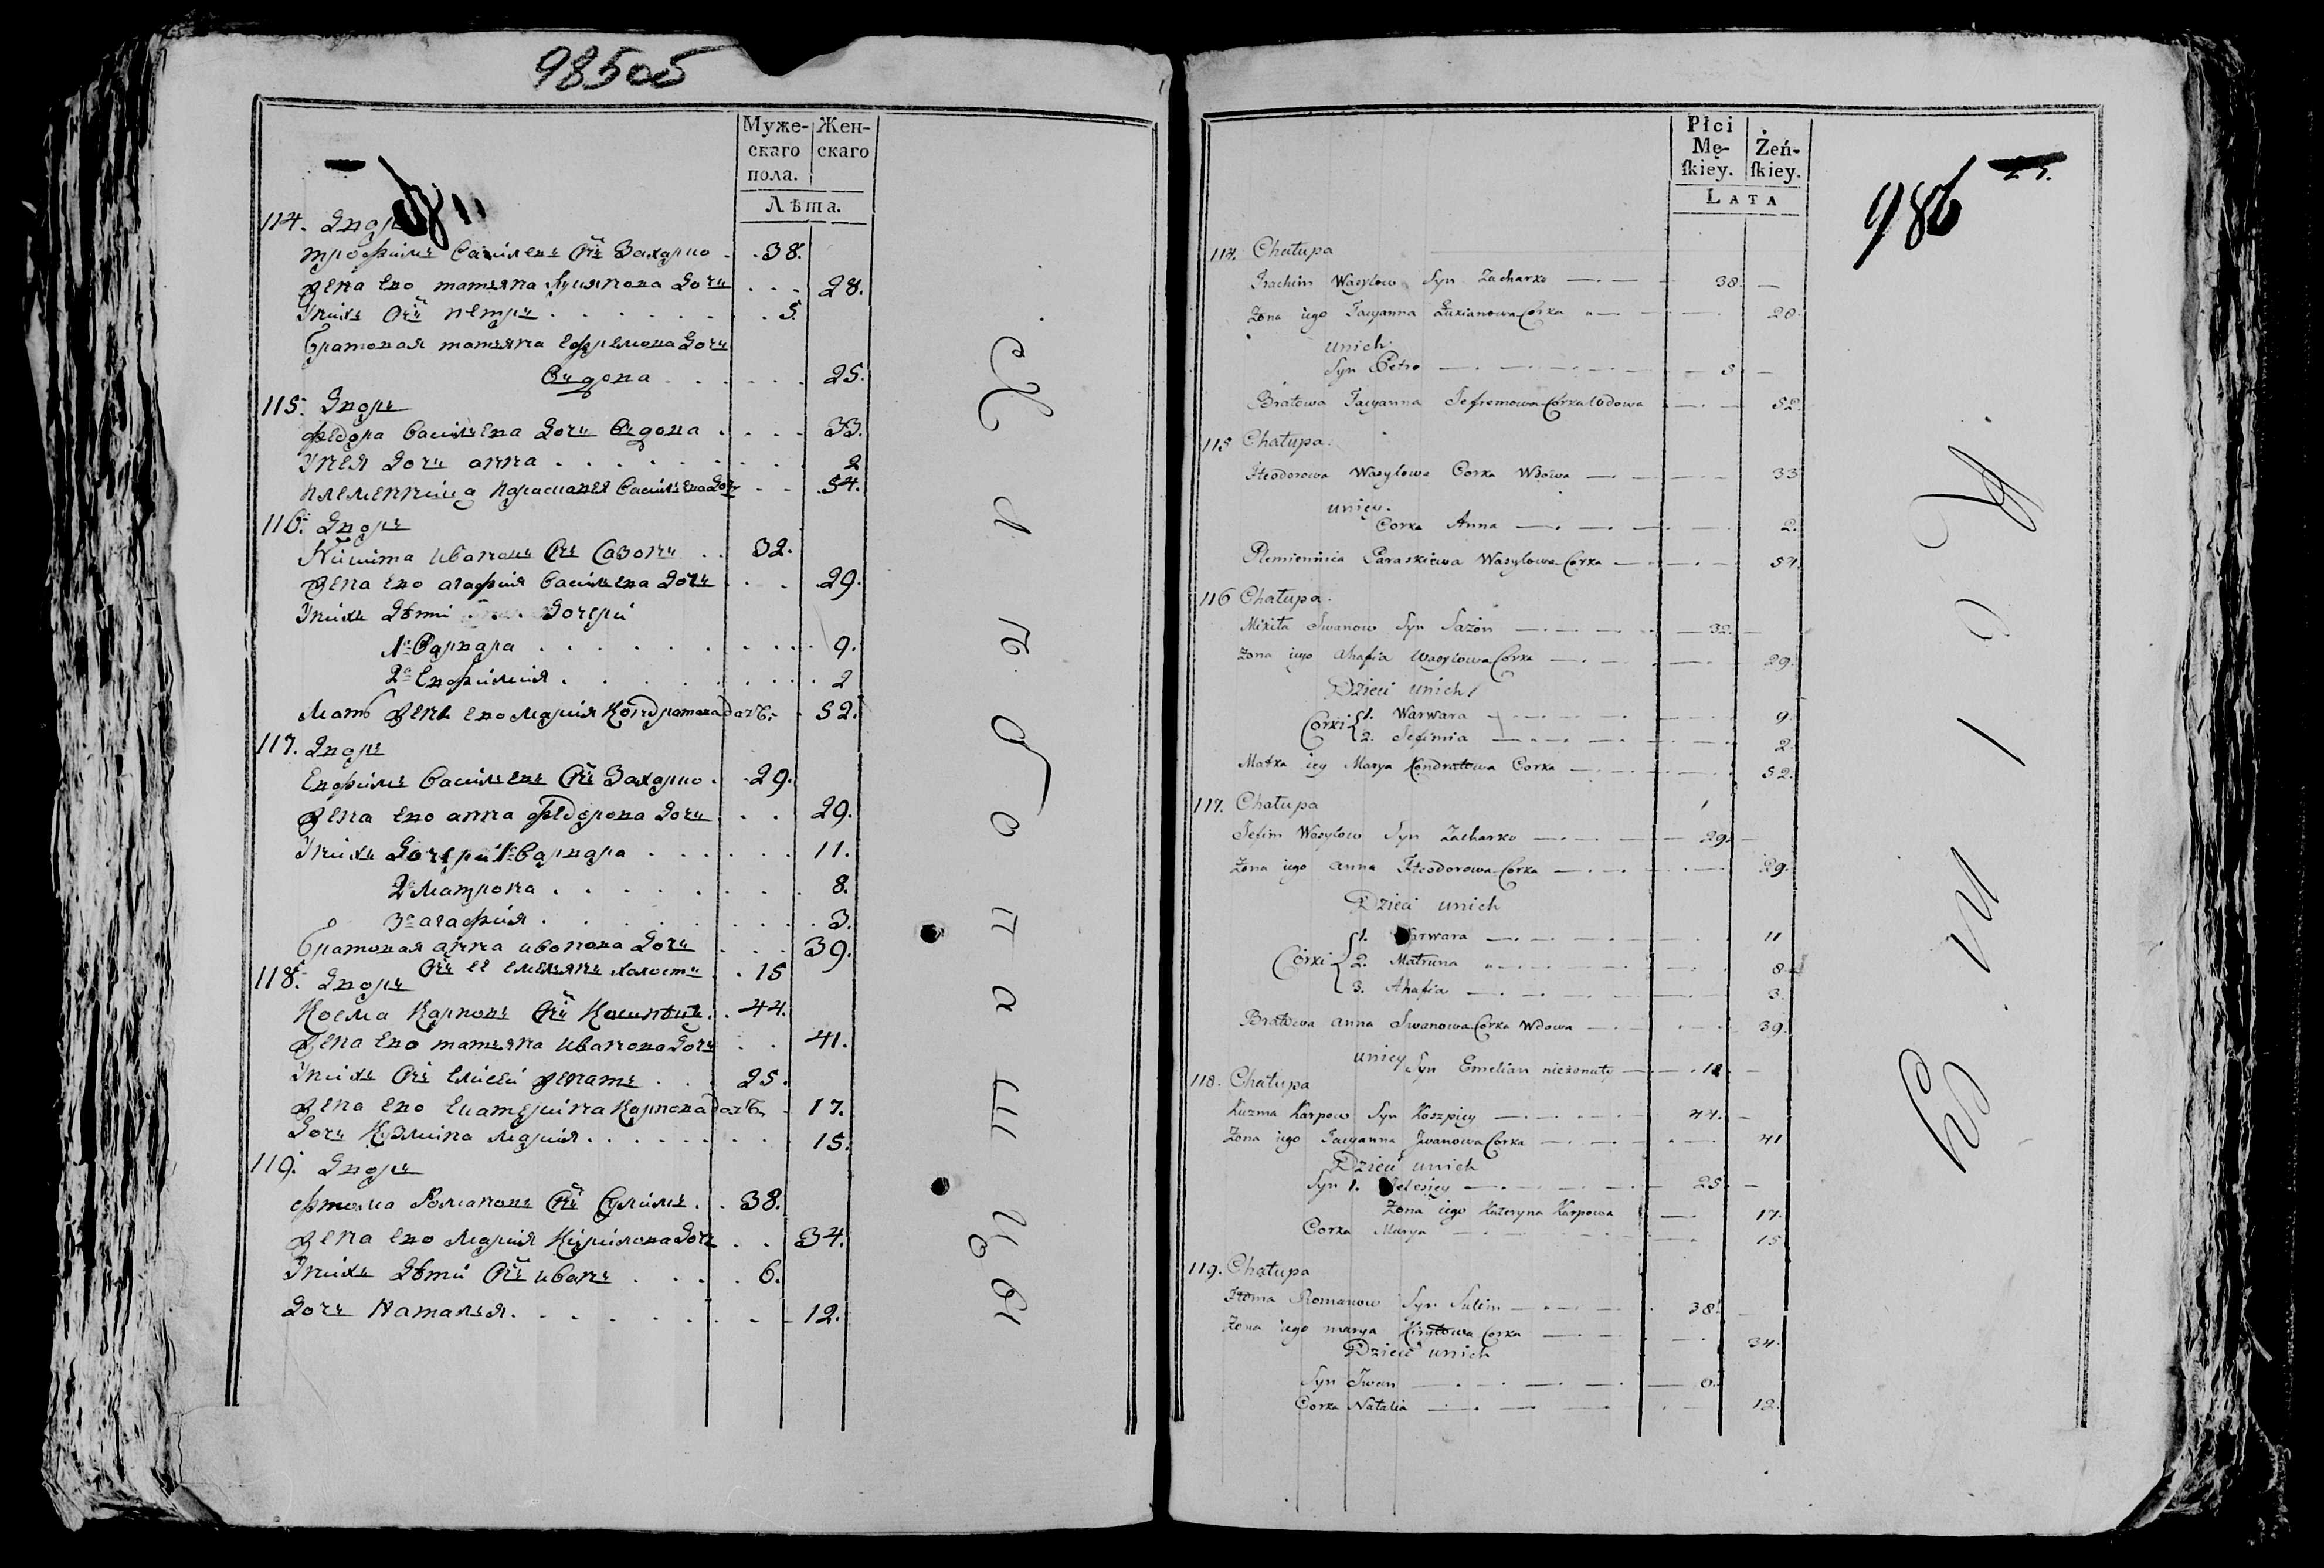 985об
Муже- Жен-
скаго скаго
пола.
Лѣта.
114. Двор
трофимъ Василевъ Снъ Захарко . . 38.
Жена его татьяна Лукянова Дочъ . . . 28.
Унихъ Снъ петръ . . . . . . . . 5.
братовая татьяна ефремова Дочъ
Вдова . . . . . . 25.
115. Дворъ
федора Василева Дочъ Вдова . . . . 33.
Унея Дочъ анна . . . . . . . . 2
племенница парасковея Василева Дочъ . . . 54.
116. Дворъ
Никита ивановъ Снъ Сазонъ . . 32.
Жена его агафия Василева Дочъ . . . 29.
Унихъ Дѣти Дочери
1я Варвара . . . . . . . . . 9.
2я Евфимия . . . . . . . . 2
Мать Жены его Мария Кондратова дочь . 52.
117. Дворъ
Евфимъ Василевъ Снъ Захарко . . 29.
Жена его анна федорова Дочъ . . . 29.
Унихъ Дочери 1я Варвара . . . . . . 11.
2я Матрона . . . . . . . . 8.
3я агафия . . . . . . . . 3.
братовая анна иванова Дочъ . . . 39.
Снъ ее емелянъ холостъ . . 15
118. Дворъ
Косма Карповъ Снъ . . 44.
Жена его татьяна иванова Дочъ . . 41.
Унихъ Снъ елисей женатъ . . . 25.
Жена его екатерина Карпова дочь . 17.
Дочъ Кузмина Мария . . . . . . . 15.
119. Дворъ
фтома Романовъ Снъ Сулимъ . . 38.
Жена его Мария Кирилова Дочъ . . 34.
Унихъ Дѣти Снъ иванъ . . . . . 6.
Дочъ Наталья . . . . . . . . 12.
Płci
Mę-
ſkiey. Żeń-
ſkiey.
LATA
986
114. Chatupa
Wasylow Syn Zacharko 38.
Zona iego Tacyanna Łukianowa Corka 28
unich
Syn Petro 5
Bratowa Tacyanna Jefremowa Corka Wdowa 52.
115 Chatupa.
Fteodorowa Wasylowa Corka Wdowa 33
uniey.
Corka Anna 2.
Plemiennica Paraskiewa Wasylowa Corka 54.
116 Chatupa.
Mikita Iwanow Syn Sazon 32.
Zona iego Ahafia Wasylowa Corka 29.
Dzieci unich
Corki 1. Warwara 9.
2. Jefimia 2.
Matka iey Marya Kondratowa Corka 52.
117. Chatupa
Jefim Wasylow Syn Zacharko 29.
Zona iego anna Fteodorowa Corka 29.
Dzieci unich
1. Warwara 11
Corki 2. Matruna 8
3. Ahafia 3.
Bratowa anna Iwanowa Corka Wdowa 39.
uniey Syn Emelian nieżonaty
118. Chatupa
Kuzma Karpow Syn Koszpiey 44.
Zona iego Tacyanna Iwanowa Corka 41
Dzieci unich
Syn 1. Jelesiey 25.
Zona iego Kateryna Karpowa 17.
Corka Marya 15
119. Chatupa
Ftoma Romanow Syn Sulim 38.
Zona iego marya Kiryłowa Corka 34.
Dzieci unich
Syn Iwan 6.
Corka Natalia 12.